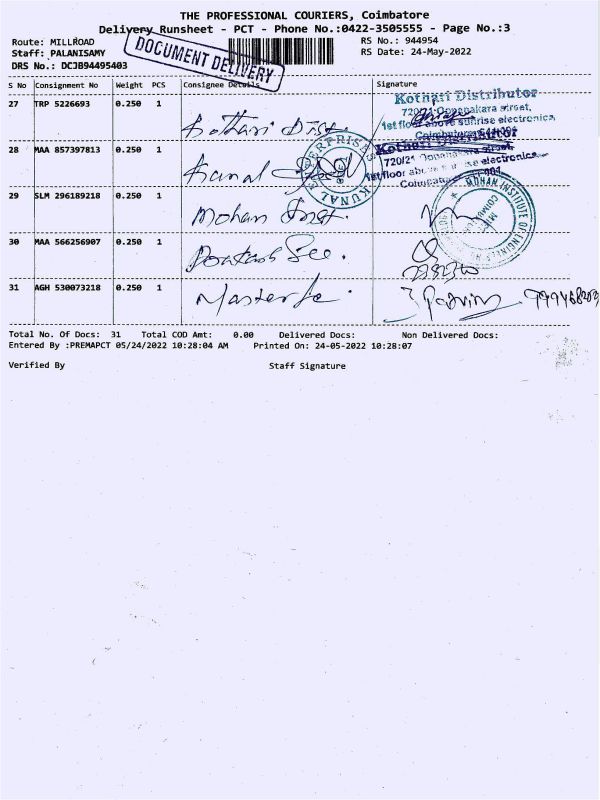 THE PROFESSIONAL COURIERS, Coimbatore
Delivery Runsheet - PCT - Phone No.:0422-3505555 - Page No.:3
Route: MILLROAD
RS No.: 944954
Staff: PALANISAMY
RS Date: 24-May-2022
DRS No.: DCJB94495403
DOCUMENT DELIVERY
S No Consignment No Weight PCS Consignee Details Signature
27 TRP 5226693 0.250 1 Kothari Dist.
Kothari Distributor
720/21 Oppanakara street,
1st floor above sunrise electronics
28 MAA 857397813 0.250 1 Kunal
KUNAL ENTERPRISES
Kothari Distributor
720/21 Oppanakara street,
1st floor
29 SLM 296189218 0.250 1 Mohan Inst.
MOHAN INSTITUTE OF ENGINEERING
30 MAA 566256907 0.250 1
31 AGH 530073218 0.250 1 Master
Total No. Of Docs: 31 Total COD Amt: 0.00 Delivered Docs: Non Delivered Docs:
Entered By :PREMAPCT 05/24/2022 10:28:04 AM Printed On: 24-05-2022 10:28:07
Verified By Staff Signature